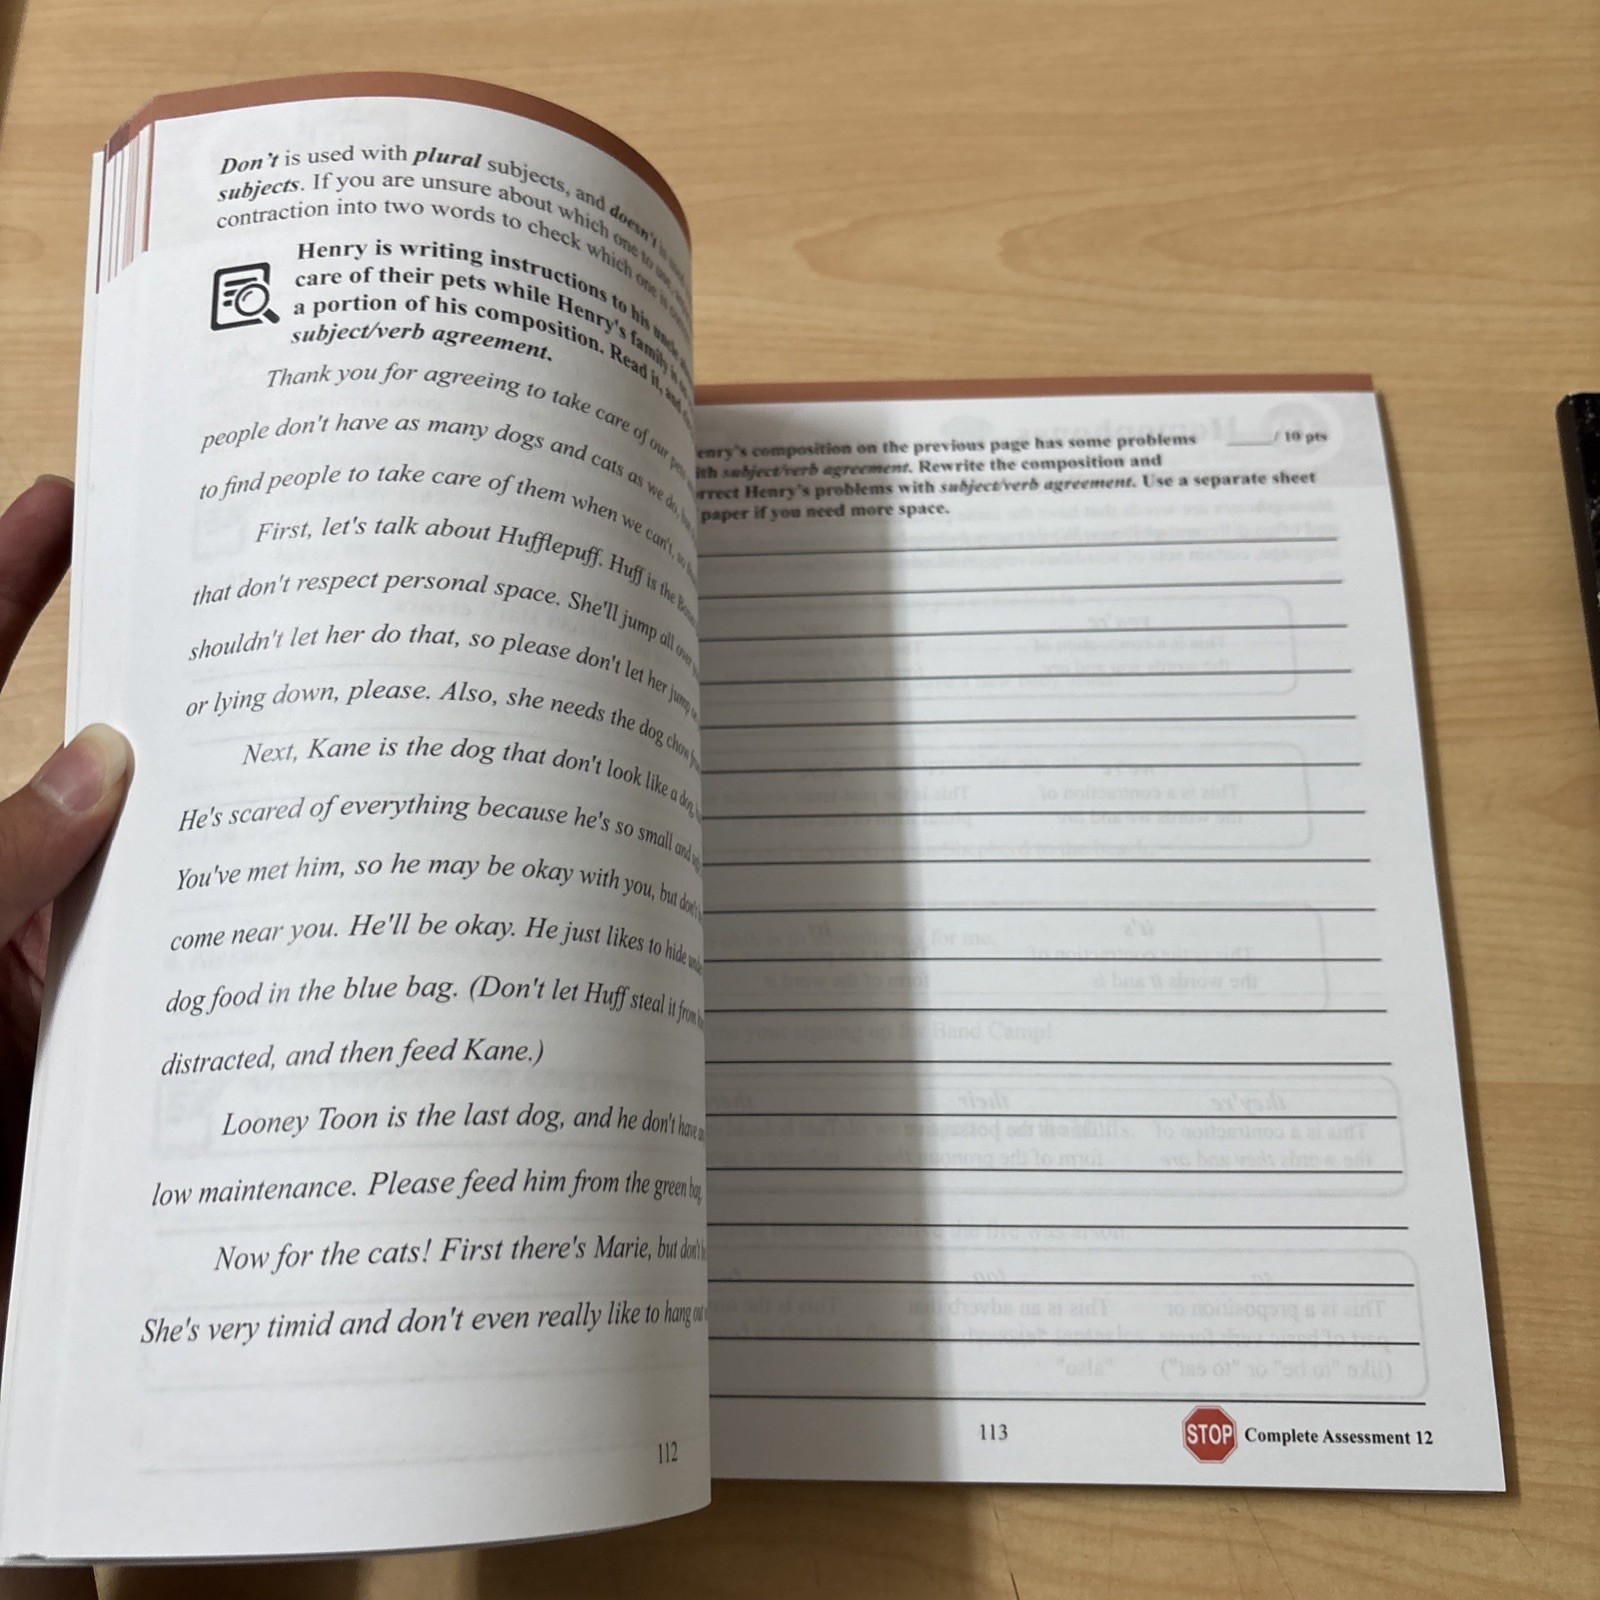 Don't is used with plural subjects, and doesn't is used
subjects. If you are unsure about which one to use,
contraction into two words to check which one is
Henry is writing instructions to his uncle
care of their pets while Henry's family is
a portion of his composition. Read it, and
subject/verb agreement.
Thank you for agreeing to take care of our pets
people don't have as many dogs and cats as we do, but
to find people to take care of them when we can't, so
First, let's talk about Hufflepuff. Huff is the
that don't respect personal space. She'll jump all over
shouldn't let her do that, so please don't let her jump
or lying down, please. Also, she needs the dog chow
Next, Kane is the dog that don't look like a dog,
He's scared of everything because he's so small and
You've met him, so he may be okay with you, but don't
come near you. He'll be okay. He just likes to hide
dog food in the blue bag. (Don't let Huff steal it from
distracted, and then feed Kane.)
Looney Toon is the last dog, and he don't have
low maintenance. Please feed him from the green bag,
Now for the cats! First there's Marie, but don't
She's very timid and don't even really like to hang out
112
enry's composition on the previous page has some problems ____/ 10 pts
ith subject/verb agreement. Rewrite the composition and
rrect Henry's problems with subject/verb agreement. Use a separate sheet
paper if you need more space.
113
STOP Complete Assessment 12